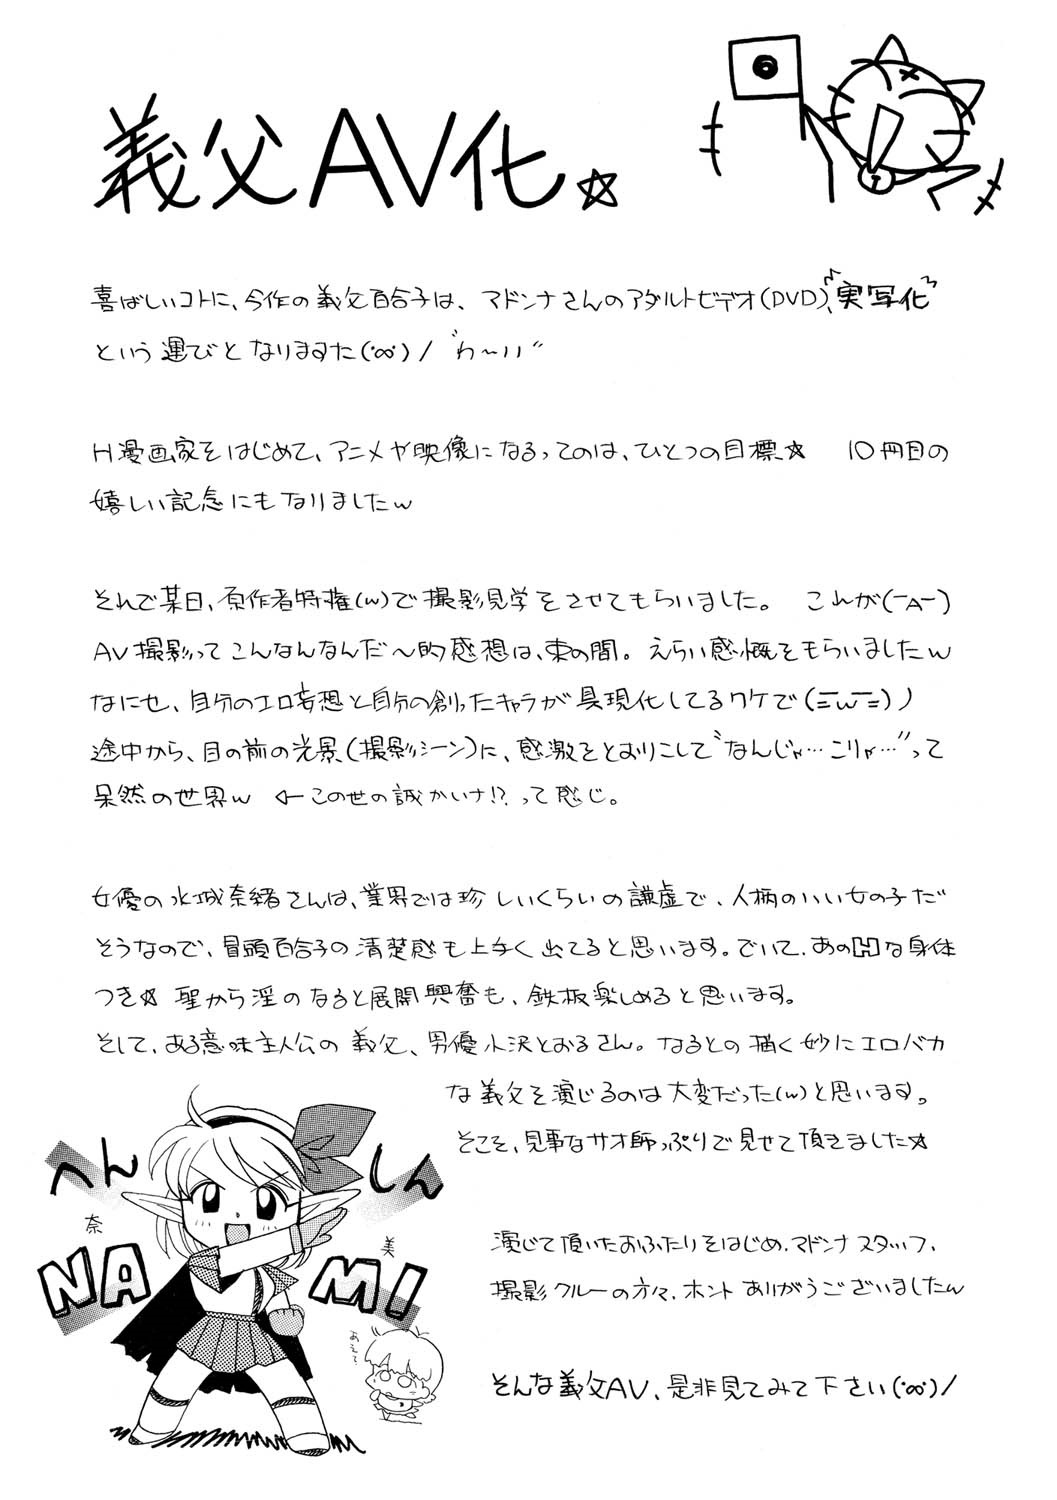 義父AV化☆
喜ばしいコトに、今作の義父百合子は、マドンナさんのアダルトビデオ(DVD)、"実写化"
という運びとなりますた(°∞°)/ "わ〜いい"
H漫画家をはじめて、アニメや映像になるってのは、ひとつの目標☆ 10冊目の
嬉しい記念にもなりましたw
それで某日、原作者特権(w)で撮影見学をさせてもらいました。 これが(￣A￣)
AV撮影ってこんなんなんだ〜的感想は、束の間。えらい感慨をもらいましたw
なにせ、自分のエロ妄想と自分の創ったキャラが具現化してるワケで(=w=)ノ
途中から、目の前の光景(撮影シーン)に、感激をとおりこして"なんじゃ…こりゃ…"って
呆然の世界w ←この世の誠かいナ!?って感じ。
女優の水城奈緒さんは、業界では珍しいくらいの謙虚で、人柄のいい女の子だ
そうなので、冒頭百合子の清楚感も上手く出てると思います。でいて、あのHな身体
つき☆ 聖から淫のなると展開興奮も、鉄板楽しめると思います。
そして、ある意味主人公の義父、男優小沢とおるさん。なるとの描く妙にエロバカ
な義父を演じるのは大変だった(w)と思います。
そこそ、見事なサオ師っぷりで見せて頂きました☆
演じて頂いたおふたりをはじめ、マドンナスタッフ、
撮影クルーの方々、ホントありがうございましたw
そんな義父AV、是非見てみて下さい(°∞°)/
へん
しん
奈
NA
美
MI
あえて